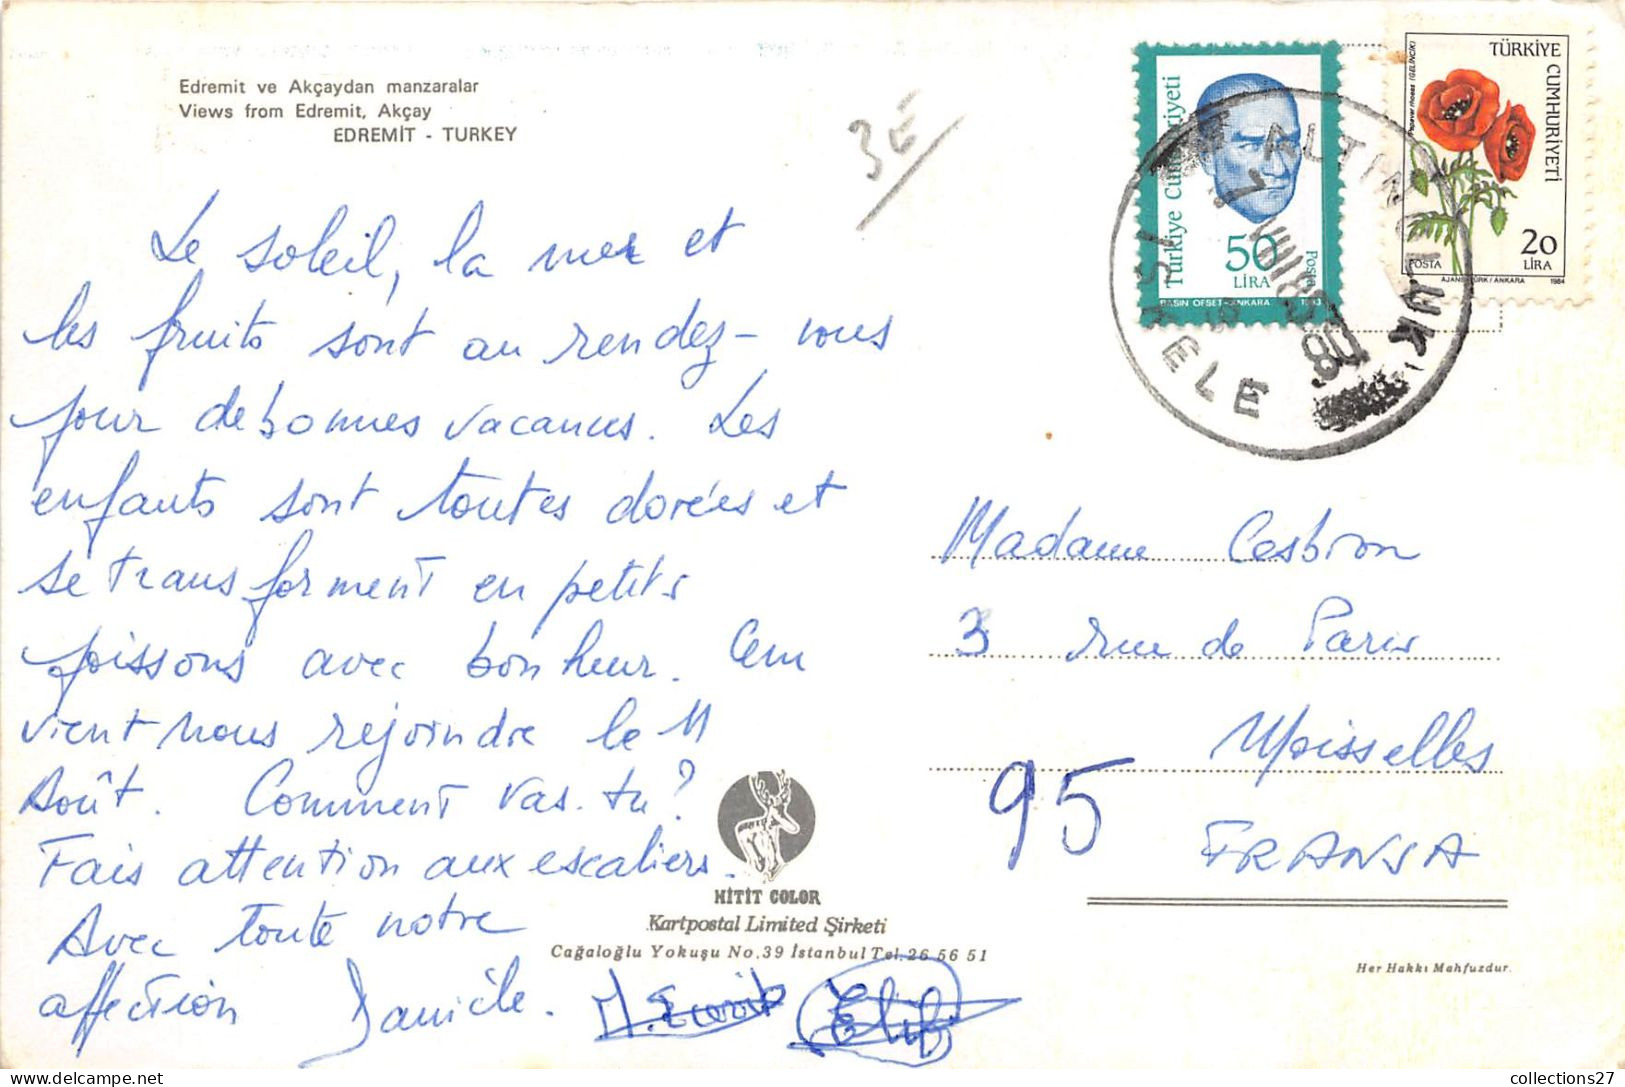 Edremit ve Akçaydan manzaralar
Views from Edremit, Akçay
EDREMİT - TURKEY
3E
Le soleil, la mer et
les fruits sont au rendez-vous
pour de bonnes vacances. Les
enfants sont toutes dorées et
se transforment en petits
poissons avec bonheur. Cem
vient nous rejoindre le 11
Août. Comment vas-tu?
Fais attention aux escaliers.
Avec toute notre
affection Danièle.
Elif
HİTİT COLOR
Kartpostal Limited Şirketi
Cağaloğlu Yokuşu No.39 İstanbul Tel. 26 56 51
Türkiye Cumhuriyeti
50
LİRA
Posta
BASIN OFSET-ANKARA 1983
TÜRKİYE CUMHURİYETİ
Papaver rhoeas (GELİNCİK)
20
LİRA
POSTA
AJANS-TÜRK/ANKARA 1984
ALTINOLUK
Madame Cesbron
3 rue de Paris
Moisselles
95
FRANSA
Her Hakkı Mahfuzdur.
collections27